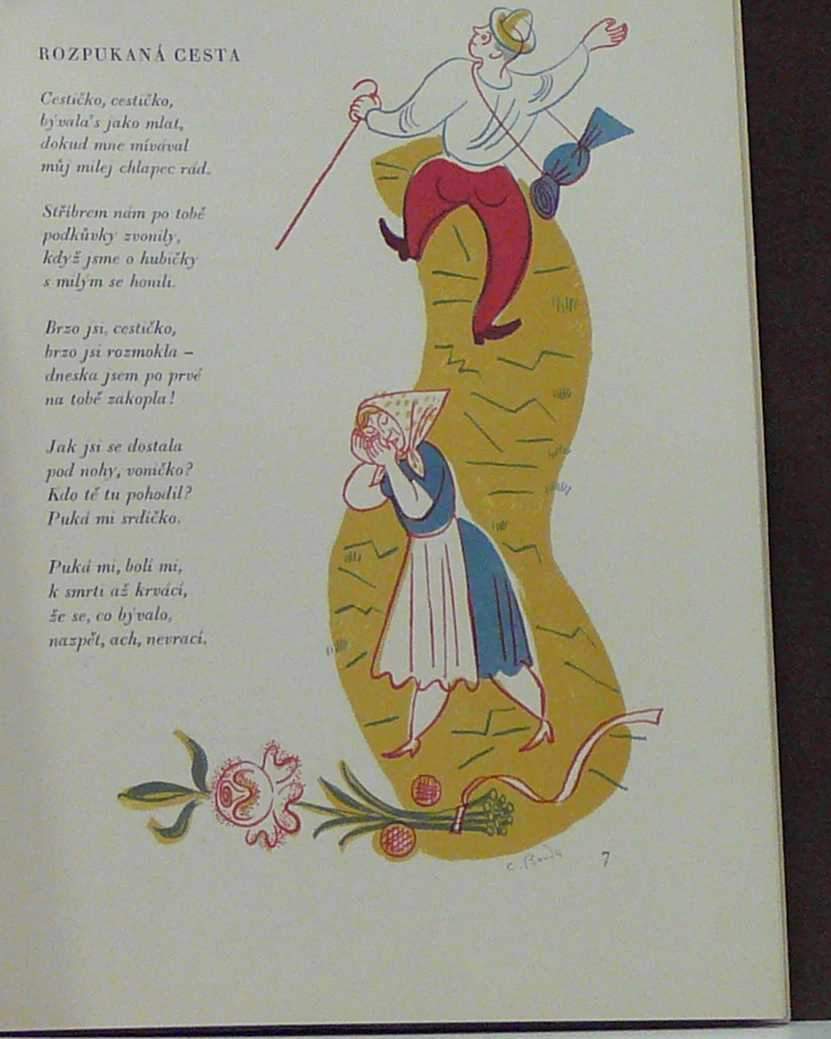 ROZPUKANÁ CESTA
Cestičko, cestičko,
bývala's jako mlat,
dokud mne mívával
můj milej chlapec rád.
Stříbrem nám po tobě
podkůvky zvonily,
když jsme o hubičky
s milým se honili.
Brzo jsi, cestičko,
brzo jsi rozmokla –
dneska jsem po prvé
na tobě zakopla!
Jak jsi se dostala
pod nohy, voničko?
Kdo tě tu pohodil?
Puká mi srdíčko.
Puká mi, bolí mi,
k smrti až krvácí,
že se, co bývalo,
nazpět, ach, nevrací.
7